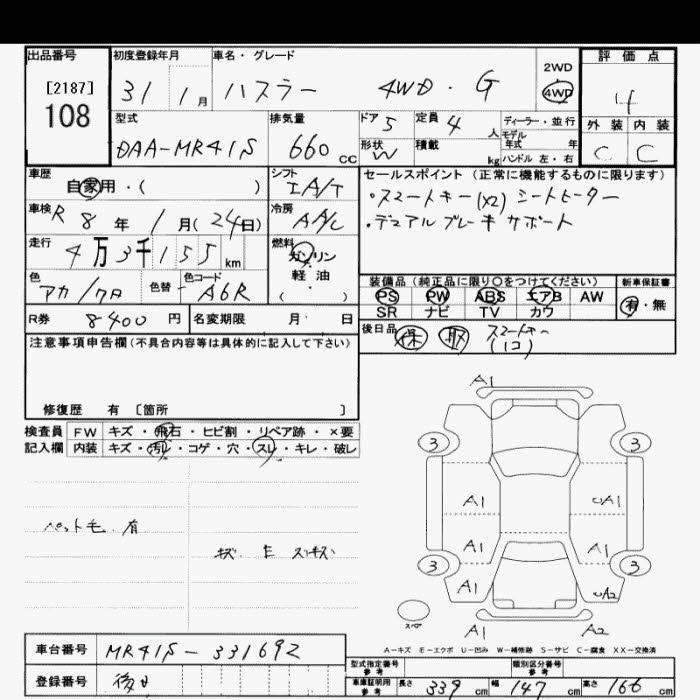 出品番号
[2187]
108
初度登録年月
31 1月
車名・グレード
ハスラー 4WD・G
2WD
4WD
評価点
4
型式
DAA-MR41S
排気量
660 CC
ドア 5
形状 W
定員 4 人
積載 kg
ディーラー・並行
モデル年式 年
ハンドル 左・右
外装 内装
C C
車歴
自家用・( )
シフト
IA/T
車検 R 8年 1月(24日)
冷房
AAC
走行
4万3千155km
燃料
ガソリン
軽・油
( )
色
アカ/クロ
色替
色コード
A6R
R券 8400円
名変期限 月 日
セールスポイント(正常に機能するものに限ります)
・スマートキー(x2) シートヒーター
・デュアルブレーキサポート
装備品(純正品に限り○をつけてください)
PS PW ABS エアB AW
SR ナビ TV カワ
新車保証書
有・無
後日品
保 取 スマートキー
(1コ)
注意事項申告欄(不具合内容等は具体的に記入して下さい)
修復歴 有 〔箇所 〕
検査員
記入欄
FW キズ・飛石・ヒビ割・リペア跡・×要
内装 キズ・汚れ・コゲ・穴・スレ・キレ・破レ
ペット毛 有
キズ E
A1
3 3
A1 A1
A1 A1
3 3
A1 A2
スペア
A1 A2
A-キズ E-エクボ U-凹み W-補修跡 S-サビ C-腐食 XX-交換済
車台番号 MR41S-331692
登録番号 後日
型式指定番号
参考
類別区分番号
参考
車庫証明用
参考
長さ 339 cm
幅 147 cm
高さ 166 cm